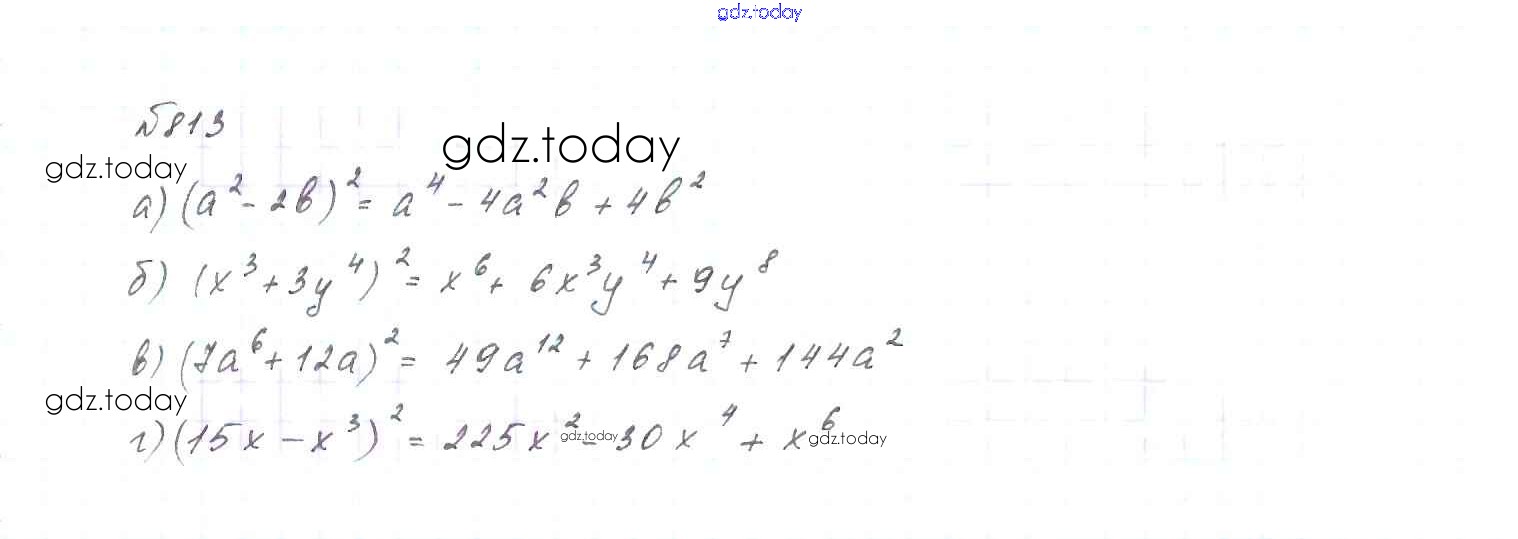 gdz.today
№813
gdz.today
gdz.today
а) (a² - 2b)² = a⁴ - 4a²b + 4b²
б) (x³ + 3y⁴)² = x⁶ + 6x³y⁴ + 9y⁸
в) (7a⁶ + 12a)² = 49a¹² + 168a⁷ + 144a²
gdz.today
г) (15x - x³)² = 225x² - 30x⁴ + x⁶
gdz.today
gdz.today